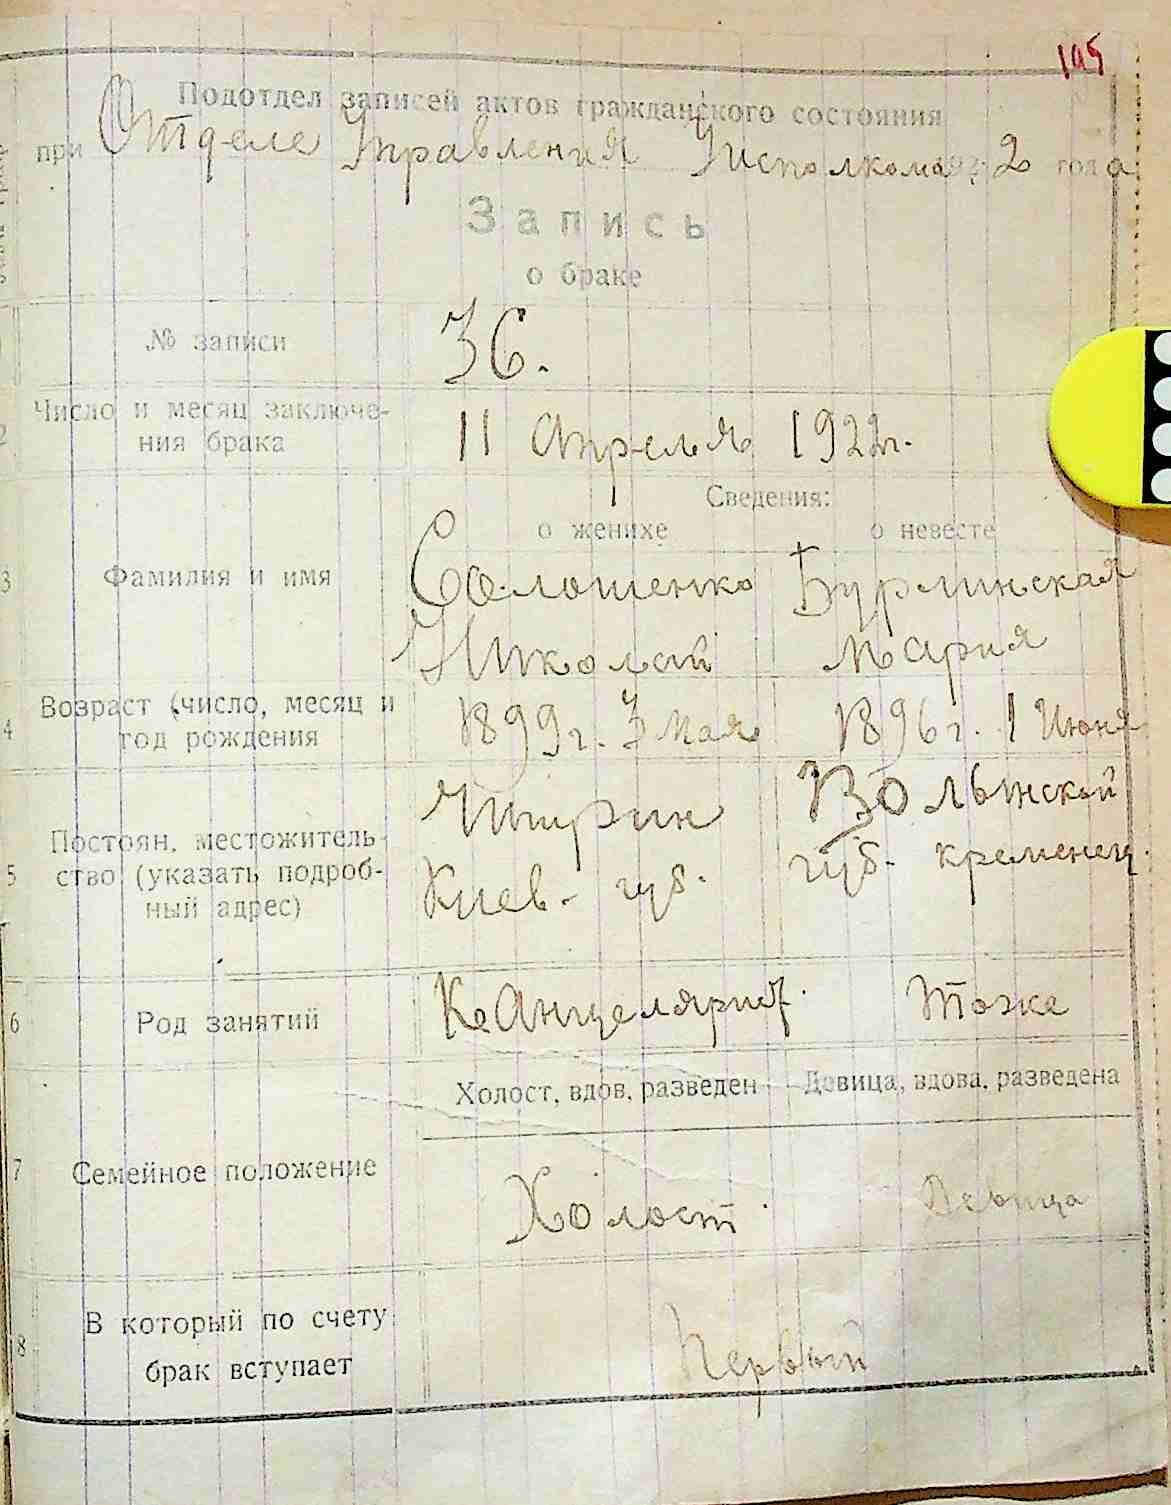 195
Подотдел записей актов гражданского состояния
при Отделе Управления Уисполкома 192 2 года
Запись
о браке
№ записи 36.
2 Число и месяц заключе-
ния брака 11 Апреля 1922г.
Сведения:
о женихе о невесте
3 Фамилия и имя Солошенко Бурлинская
Николай Мария
4 Возраст (число, месяц и
год рождения 1899г. 3 Мая 1896г. 1 Июня
5 Постоян. местожитель-
ство (указать подроб-
ный адрес)
Волынской
Киев. губ. губ. кременец.
6 Род занятий Канцелярист. тоже
Холост, вдов, разведен Девица, вдова, разведена
7 Семейное положение Холост. Девица
8 В который по счету
брак вступает Первый